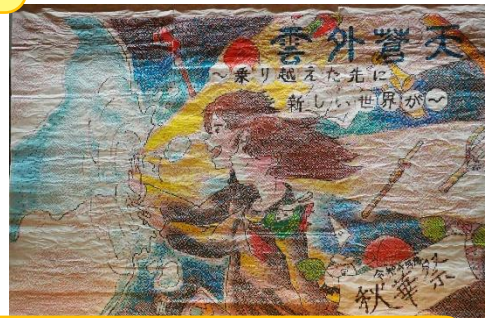 雲外蒼天
～乗り越えた先に
新しい世界が～
秋華祭